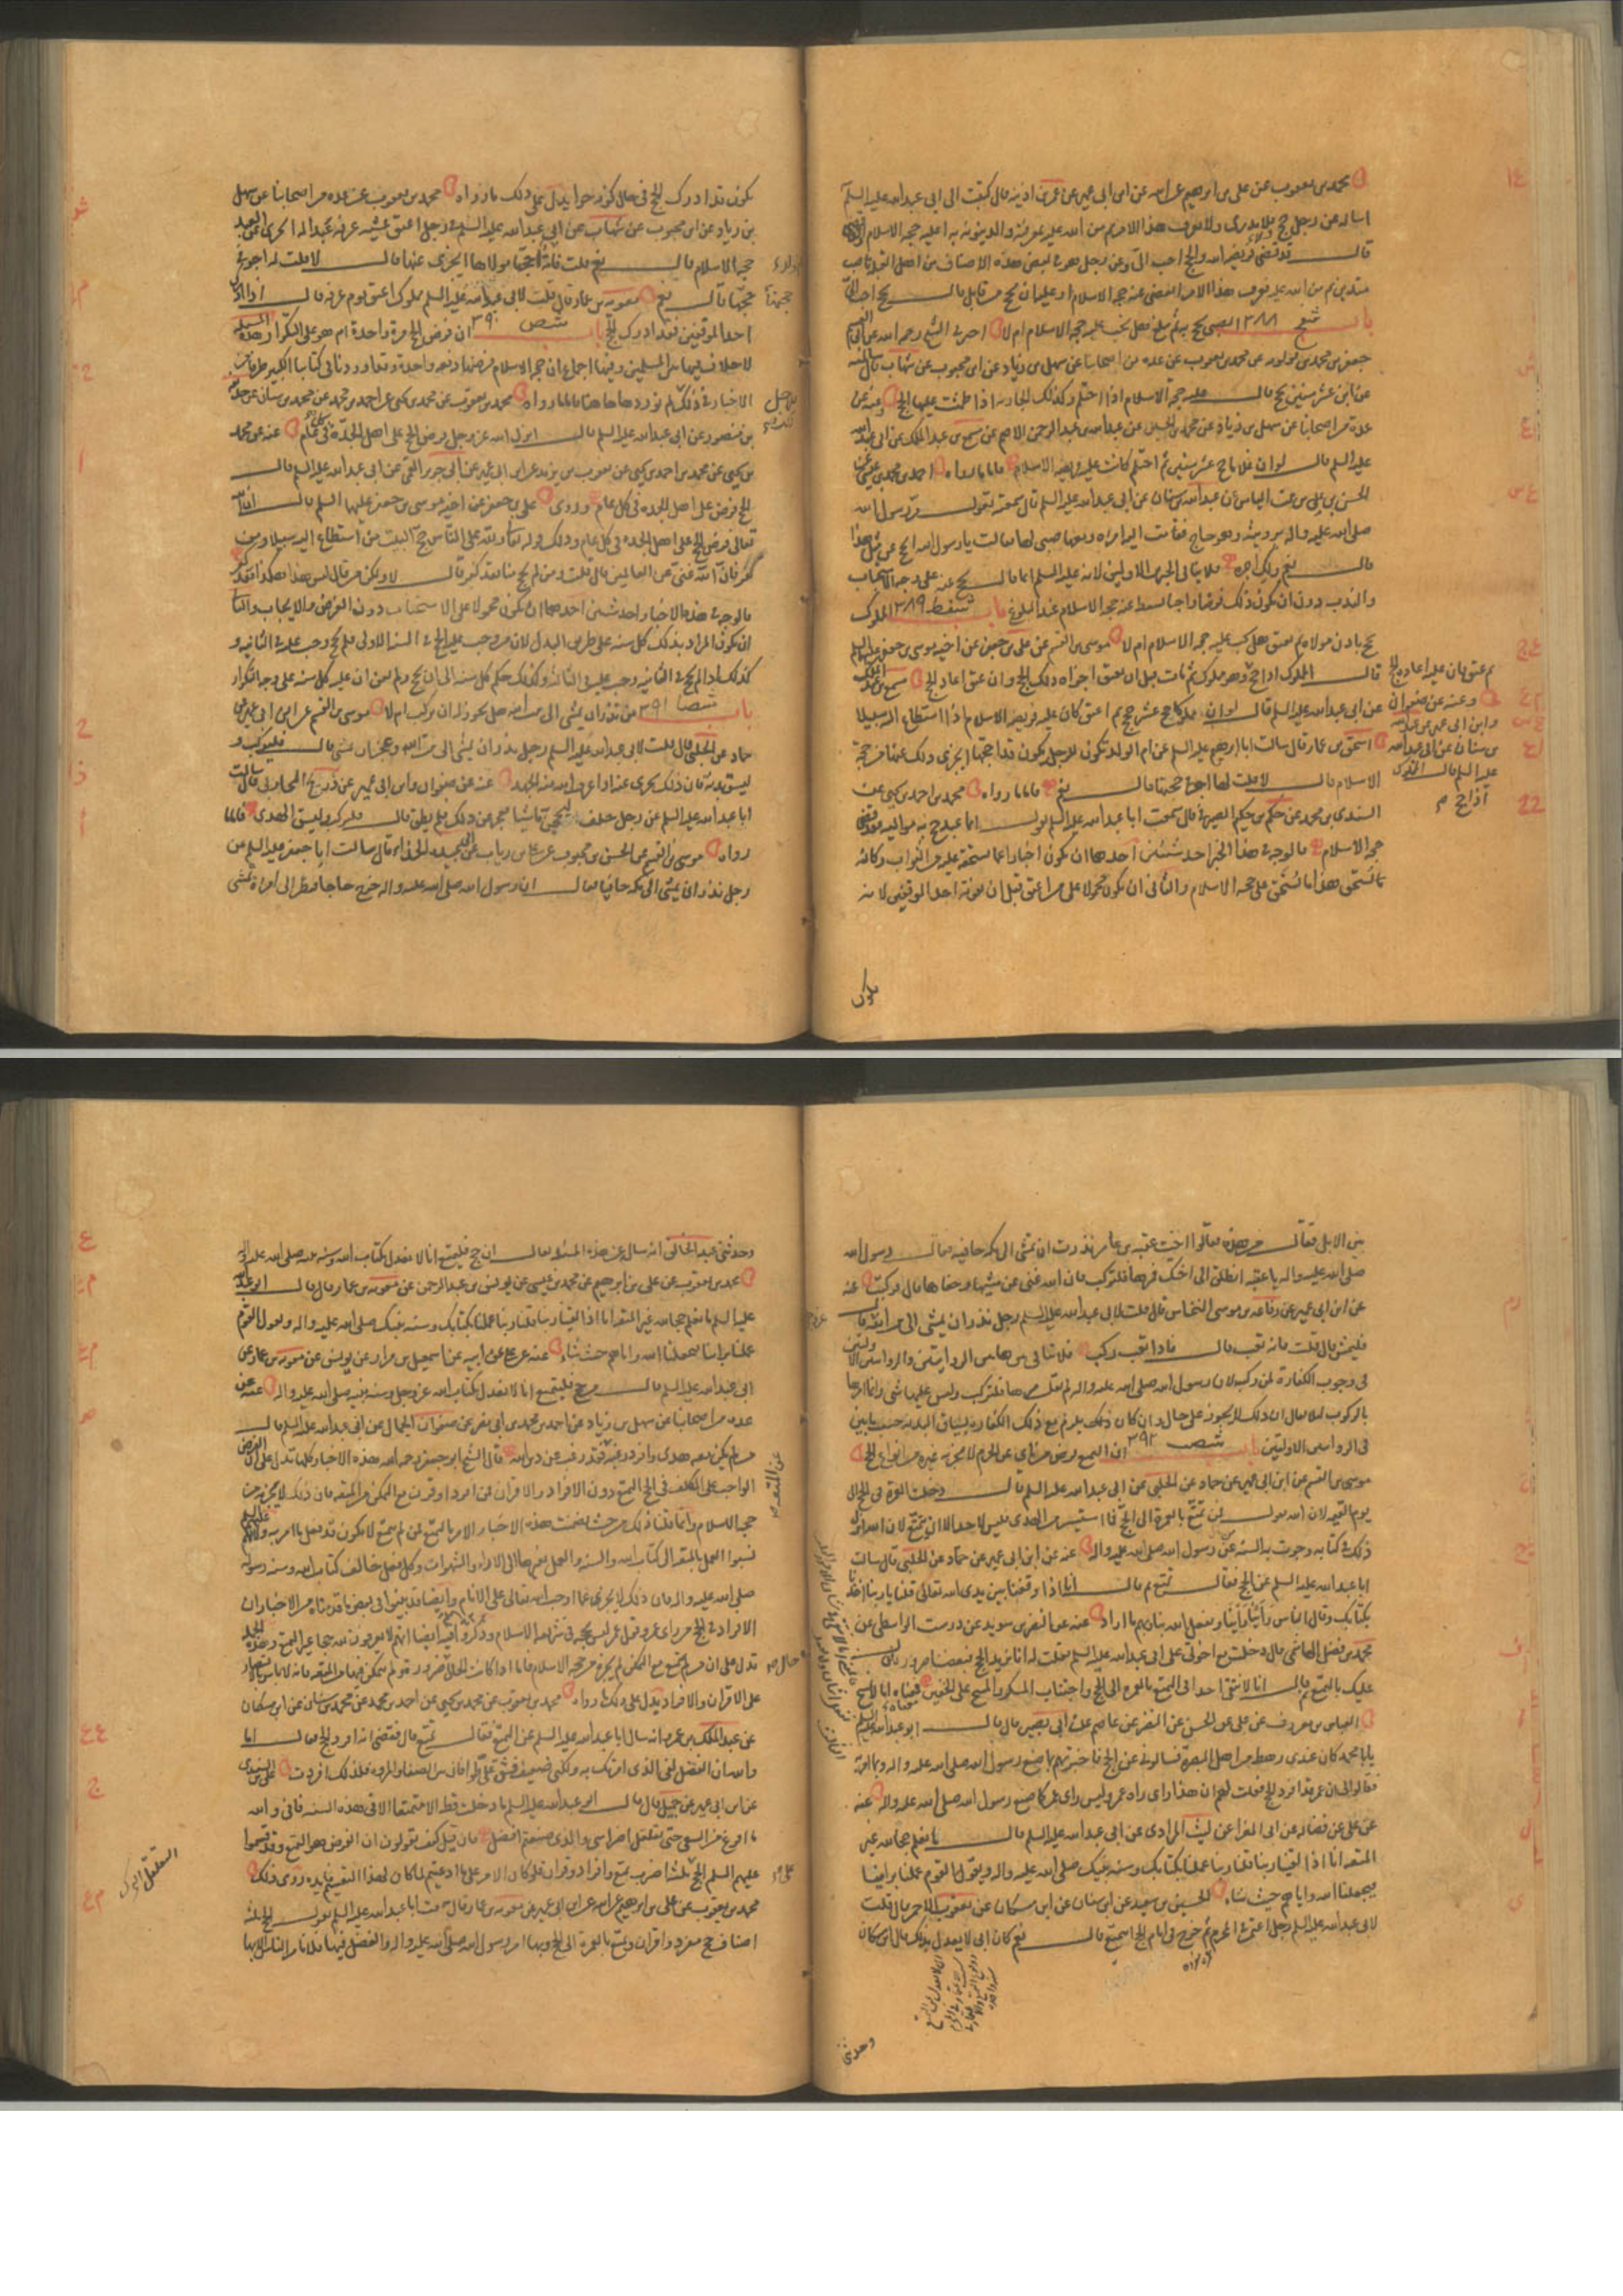 محمد بن يعقوب عن علي بن ابرهيم عن ابيه عن ابن ابي عمير عن عمر بن اذينه قال كتبت الى ابي عبد الله عليه السلم
اساله عن رجل حج ولا يدرى ولا يعرف هذا الامر ثم من الله عليه بمعرفته والدينونه به اعليه حجه الاسلام
قال قد قضى فريضه الله والحج احب الى وعن رجل هو في بعض هذه الاصناف من اهل القبله ناصب
متدين ثم من الله عليه فعرف هذا الامر ايقضى عنه حجه الاسلام او عليه ان يحج من قابل قال يحج احب الى
باب ٣٨٨ الصبي يحج به ثم يبلغ هل يجب عليه حجه الاسلام ام لا اخبرني الشيخ رحمه الله عن ابي القسم
جعفر بن محمد بن قولويه عن محمد بن يعقوب عن عده من اصحابنا عن سهل بن زياد عن ابن محبوب عن شهاب قال سالته
عن ابن عشر سنين يحج قال عليه حجه الاسلام اذا احتلم وكذلك الجاريه اذا طمثت عليها الحج وعنه عن
عدة من اصحابنا عن سهل بن زياد عن محمد بن الحسن عن عبد الله بن عبد الرحمن الاصم عن مسمع بن عبد الملك عن ابي عبد الله
عليه السلم قال لو ان غلاما حج عشر سنين ثم احتلم كانت عليه فريضه الاسلام فاما ما رواه احمد بن محمد بن عيسى عن
الحسن بن علي بن بنت الياس عن عبد الله بن سنان عن ابي عبد الله عليه السلم قال سمعته يقول مر رسول الله
صلى الله عليه واله برويثه وهو حاج فقامت اليه امراه ومعها صبي لها فقالت يا رسول الله ايحج عن مثل هذا
قال نعم ولك اجره فلا ينافي الخبرين الاولين لانه عليه السلم انما قال يحج عنه على وجه الاستحباب
والندب دون ان يكون ذلك فرضا واجبا يسقط عنه حجه الاسلام عند البلوغ باب ٣٨٩ المملوك
يحج باذن مولاه ثم يعتق هل يجب عليه حجه الاسلام ام لا موسى بن القسم عن علي بن جعفر عن اخيه موسى بن جعفر عليه السلم
قال المملوك اذا حج وهو مملوك ثم مات قبل ان يعتق اجزاه ذلك الحج وان عتق اعاد الحج مسمع بن عبد الملك
عن ابي عبد الله عليه السلم قال لو ان مملوكا حج عشر حجج ثم اعتق كان عليه فريضه الاسلام اذا استطاع اليه سبيلا
اسحق بن عمار قال سالت ابا ابرهيم عليه السلم عن ام الولد تكون للرجل ويكون قد احجها ايجزى ذلك عنها من حجة
الاسلام قال لا قلت لها اجر في حجتها قال نعم فاما ما رواه محمد بن احمد بن يحيى عن
السندي بن محمد عن حكم بن حكيم الصيرفي قال سمعت ابا عبد الله عليه السلم يقول ايما عبد حج به مواليه فقد قضى
حجه الاسلام فالوجه في هذا الخبر احد شيئين احدهما ان يكون اخبارا عما يستحقه عليه من الثواب وكانه
يستحق بهذا ما يستحق على حجه الاسلام والثاني ان يكون محمولا على من اعتق قبل ان يفوته احد الموقفين لانه
يكون
ثم عتق فان عليه اعادة الحج
وعنه عن صفوان
وابن ابي عمير عن عبد الله
بن سنان عن ابي عبد الله
عليه السلم قال المملوك
اذا حج
يكون قد ادرك الحج في حال كونه حرا يدل على ذلك ما رواه محمد بن يعقوب عن عده من اصحابنا عن سهل
بن زياد عن ابن محبوب عن شهاب عن ابي عبد الله عليه السلم في رجل اعتق عشيه عرفه عبدا له ايجزى عن العبد
حجه الاسلام قال نعم قلت فام ولد احجها مولاها ايجزى عنها قال لا قلت له اجر في
حجتها قال نعم معويه بن عمار قال قلت لابي عبد الله عليه السلم مملوك اعتق يوم عرفه قال اذا ادرك
احد الموقفين فقد ادرك الحج باب ٣٩٠ ان فرض الحج مرة واحدة ام هو على التكرار هذه المسئله
لا خلاف فيها بين المسلمين وفيها اجماع ان حجه الاسلام فرضها دفعه واحدة وقد اوردنا في كتابنا الكبير طرفا من
الاخبار في ذلك لم نوردها ههنا فاما ما رواه محمد بن يعقوب عن محمد بن يحيى عن احمد بن محمد عن محمد بن سنان عن حذيفه
بن منصور عن ابي عبد الله عليه السلم قال انزل الله عز وجل فرض الحج على اهل الجدة في كل عام عنه عن محمد
بن يحيى عن محمد بن احمد بن يحيى عن يعقوب بن يزيد عن ابن ابي عمير عن ابي جرير القمي عن ابي عبد الله عليه السلم قال
الحج فرض على اهل الجده في كل عام وروى علي بن جعفر عن اخيه موسى بن جعفر عليهما السلم قال ان الله
تعالى فرض الحج على اهل الجده في كل عام وذلك قوله تعالى ولله على الناس حج البيت من استطاع اليه سبيلا ومن
كفر فان الله غني عن العالمين قال قلت ومن لم يحج منا فقد كفر قال لا ولكن من قال ليس هذا هكذا فقد كفر
فالوجه في هذه الاخبار احد شيئين احدهما ان يكون محمولا على الاستحباب دون الفرض والايجاب والثاني
ان يكون المراد بذلك كل سنه على طريق البدل لان من وجب عليه الحج في السنه الاولى فلم يحج وجب عليه في الثانيه و
كذلك اذا لم يحج في الثانيه وجب عليه في الثالثه وكذلك حكم كل سنه الى ان يحج ولم يعن ان عليه كل سنه على وجه التكرار
باب ٣٩١ من نذر ان يمشى الى بيت الله هل يجوز له ان يركب ام لا موسى بن القسم عن ابن ابي عمير عن
حماد عن الحلبي قال قلت لابي عبد الله عليه السلم رجل نذر ان يمشى الى بيت الله وعجز ان يمشى قال فليركب و
ليسق بدنه فان ذلك يجزى عنه اذا عرف الله منه الجهد عنه عن صفوان وابن ابي عمير عن ذريح المحاربي قال سالت
ابا عبد الله عليه السلم عن رجل حلف ليحجن ماشيا فعجز عن ذلك فلم يطقه قال فليركب وليسق الهدى فاما ما
رواه موسى بن القسم عن الحسن بن محبوب عن علي بن رياب عن ابي عبيده الحذاء قال سالت ابا جعفر عليه السلم عن
رجل نذر ان يمشى الى مكه حافيا فقال ان رسول الله صلى الله عليه واله خرج حاجا فنظر الى امراة تمشى
بين الابل فقال من هذه فقالوا اخت عقبه بن عامر نذرت ان تمشى الى مكه حافيه فقال رسول الله
صلى الله عليه واله يا عقبه انطلق الى اختك فمرها فلتركب فان الله غني عن مشيها وحفاها قال فركبت عنه
عن ابن ابي عمير عن رفاعه بن موسى النخاس قال قلت لابي عبد الله عليه السلم رجل نذر ان يمشى الى بيت الله قال
فليمش قال قلت فانه تعب قال فاذا تعب ركب فلا تنافى بين هاتين الروايتين والروايتين الاولتين
في وجوب الكفارة لمن ركب لان رسول الله صلى الله عليه واله لم يقل مرها فلتركب وليس عليها شي وانما امرها
بالركوب لئلا يقال ان ذلك لا يجوز على حال وان كان ذلك يلزم مع ذلك الكفاره بسياق البدنه حسب ما بين
في الروايتين الاولتين باب ٣٩٢ ان التمتع فرض من ناي عن الحرم لا يجزيه غيره من انواع الحج
موسى بن القسم عن ابن ابي عمير عن حماد عن الحلبي عن ابي عبد الله عليه السلم قال دخلت العمرة في الحج الى
يوم القيمه لان الله يقول فمن تمتع بالعمرة الى الحج فما استيسر من الهدى فليس لاحد الا ان يتمتع لان الله انزل
ذلك في كتابه وجرت به السنه من رسول الله صلى الله عليه واله عنه عن ابن ابي عمير عن حماد عن الحلبي قال سالت
ابا عبد الله عليه السلم عن الحج فقال تمتع ثم قال انا اذا وقفنا بين يدي الله تعالى قلنا يا ربنا اخذنا
بكتابك وقال الناس راينا راينا ويفعل الله بنا وبهم ما اراد عنه عن النضر بن سويد عن درست الواسطي عن
محمد بن فضل الهاشمي قال دخلت مع اخوتي على ابي عبد الله عليه السلم فقلت له انا نريد الحج فبعضنا صرورة قال
عليك بالتمتع ثم قال انا لا نتقي احدا في التمتع بالعمره الى الحج واجتناب المسكر والمسح على الخفين معناه انا لا نمسح
العباس بن معروف عن علي عن الحسن عن النضر عن عاصم عن ابي بصير قال قال ابو عبد الله عليه السلم
يا با محمد كان عندي رهط من اهل البصرة فسالوني عن الحج فاخبرتهم بما صنع رسول الله صلى الله عليه واله وما امر به
فقالوا لي ان عمر قد افرد الحج فقلت لهم ان هذا راي راه عمر وليس راي عمر كما صنع رسول الله صلى الله عليه واله عنه
عن علي عن فضاله عن ابي المغرا عن ليث المرادي عن ابي عبد الله عليه السلم قال ما نعلم حجا لله غير
المتعه انا اذا لقينا ربنا قلنا ربنا عملنا بكتابك وسنه نبيك صلى الله عليه واله ويقول القوم عملنا براينا
فيجعلنا الله واياهم حيث شاء الحسين بن سعيد عن ابن سنان عن ابن مسكان عن يعقوب الاحمر قال قلت
لابي عبد الله عليه السلم رجل اعتمر في المحرم ثم خرج في ايام الحج ايتمتع قال نعم كان ابي لا يعدل بذلك قال ابن مسكان
وحدثني
وحدثني عبد الخالق انه سال عن هذه المسئله فقال ان حج فليتمتع انا لا نعدل بكتاب الله وسنه نبيه صلى الله عليه واله
محمد بن يعقوب عن علي بن ابرهيم عن محمد بن عيسى عن يونس بن عبد الرحمن عن معويه بن عمار قال قال ابو عبد الله
عليه السلم ما نعلم حجا لله غير المتعه انا اذا لقينا ربنا قلنا ربنا عملنا بكتابك وسنه نبيك صلى الله عليه واله ويقول القوم
عملنا براينا فيجعلنا الله واياهم حيث شاء عنه عن علي عن ابيه عن اسمعيل بن مرار عن يونس عن معويه بن عمار عن
ابي عبد الله عليه السلم قال من حج فليتمتع انا لا نعدل بكتاب الله عز وجل وسنه نبيه صلى الله عليه واله عنه عن
عده من اصحابنا عن سهل بن زياد عن احمد بن محمد بن ابي نصر عن صفوان الجمال عن ابي عبد الله عليه السلم قال
من لم يكن معه هدى وافرد رغبه عن المتعه فقد رغب عن دين الله قال الشيخ ابو جعفر رحمه الله هذه الاخبار كلها تدل على ان الفرض
الواجب على المكلف في الحج التمتع دون الافراد والاقران لمن افرد او قرن مع التمكن من المتعه فان ذلك لا يجزيه عن
حجه الاسلام وانما قلنا ذلك من حيث تضمنت هذه الاخبار الامر بالتمتع فمن لم يتمتع لا يكون قد فعل ما امر به ولانهم عليهم السلم
نسبوا العمل بالمتعه الى كتاب الله والسنه والعمل بغيرها الى الاراء والشهوات وكل فعل خالف كتاب الله وسنه رسوله
صلى الله عليه واله فان ذلك لا يجزى عما اوجب الله تعالى على الانام وايضا قد بينوا في بعض ما قدمناه من الاخبار ان
الافراد في الحج من راى عمر وقول عمر ليس بحجه في شرايع الاسلام وذكروا فيه ايضا انهم لا يعرفون لله حجا غير التمتع وهذه الجمله
تدل على ان من لم يتمتع مع التمكن لم يجزه عن حجه الاسلام فاما اذا كانت الحال حال ضرورة ولم يتمكن فيها من المتعه فانه لا باس بالاقتصار
على الاقران والافراد يدل على ذلك ما رواه محمد بن يعقوب عن محمد بن يحيى عن احمد بن محمد عن محمد بن سنان عن ابن مسكان
عن عبد الملك بن عمرو انه سال ابا عبد الله عليه السلم عن التمتع فقال تمتع قال فقضى انه افرد الحج فقال اما
والله ان الفضل لفي الذي امرتك به ولكني ضعيف فشق علي طوافان بين الصفا والمروه فلذلك افردت علي بن السندي
عن ابن ابي عمير عن جميل قال قال ابو عبد الله عليه السلم ما دخلت قط الا متمتعا الا في هذه السنه فاني والله
ما افرغ من السعي حتى يتقلقل اضراسي والذي صنعتم افضل فان قيل كيف تقولون ان الفرض هو التمتع وقد قسموا
عليهم السلم الحج ثلثه اضرب تمتع وافراد وقران فلو كان الامر على ما ادعيتم لما كان لهذا التقسيم فايده روى ذلك
محمد بن يعقوب عن علي بن ابرهيم عن ابيه عن ابن ابي عمير عن معويه بن عمار قال سمعت ابا عبد الله عليه السلم يقول الحج ثلثه
اصناف حج مفرد واقران وتمتع بالعمرة الى الحج وبها امر رسول الله صلى الله عليه واله والفضل فيها فلا نامر الناس الا بها